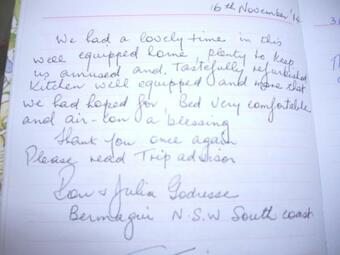 16th November '14
We had a lovely time in this
well equipped home plenty to keep
us amused and. Tastefully refurbished
Kitchen well equipped and more that
we had hoped for. Bed very comfortable
and air-con a blessing
Thank you once again
Please read Trip advisor
Ron & Julia
Bermagui N.S.W South coast